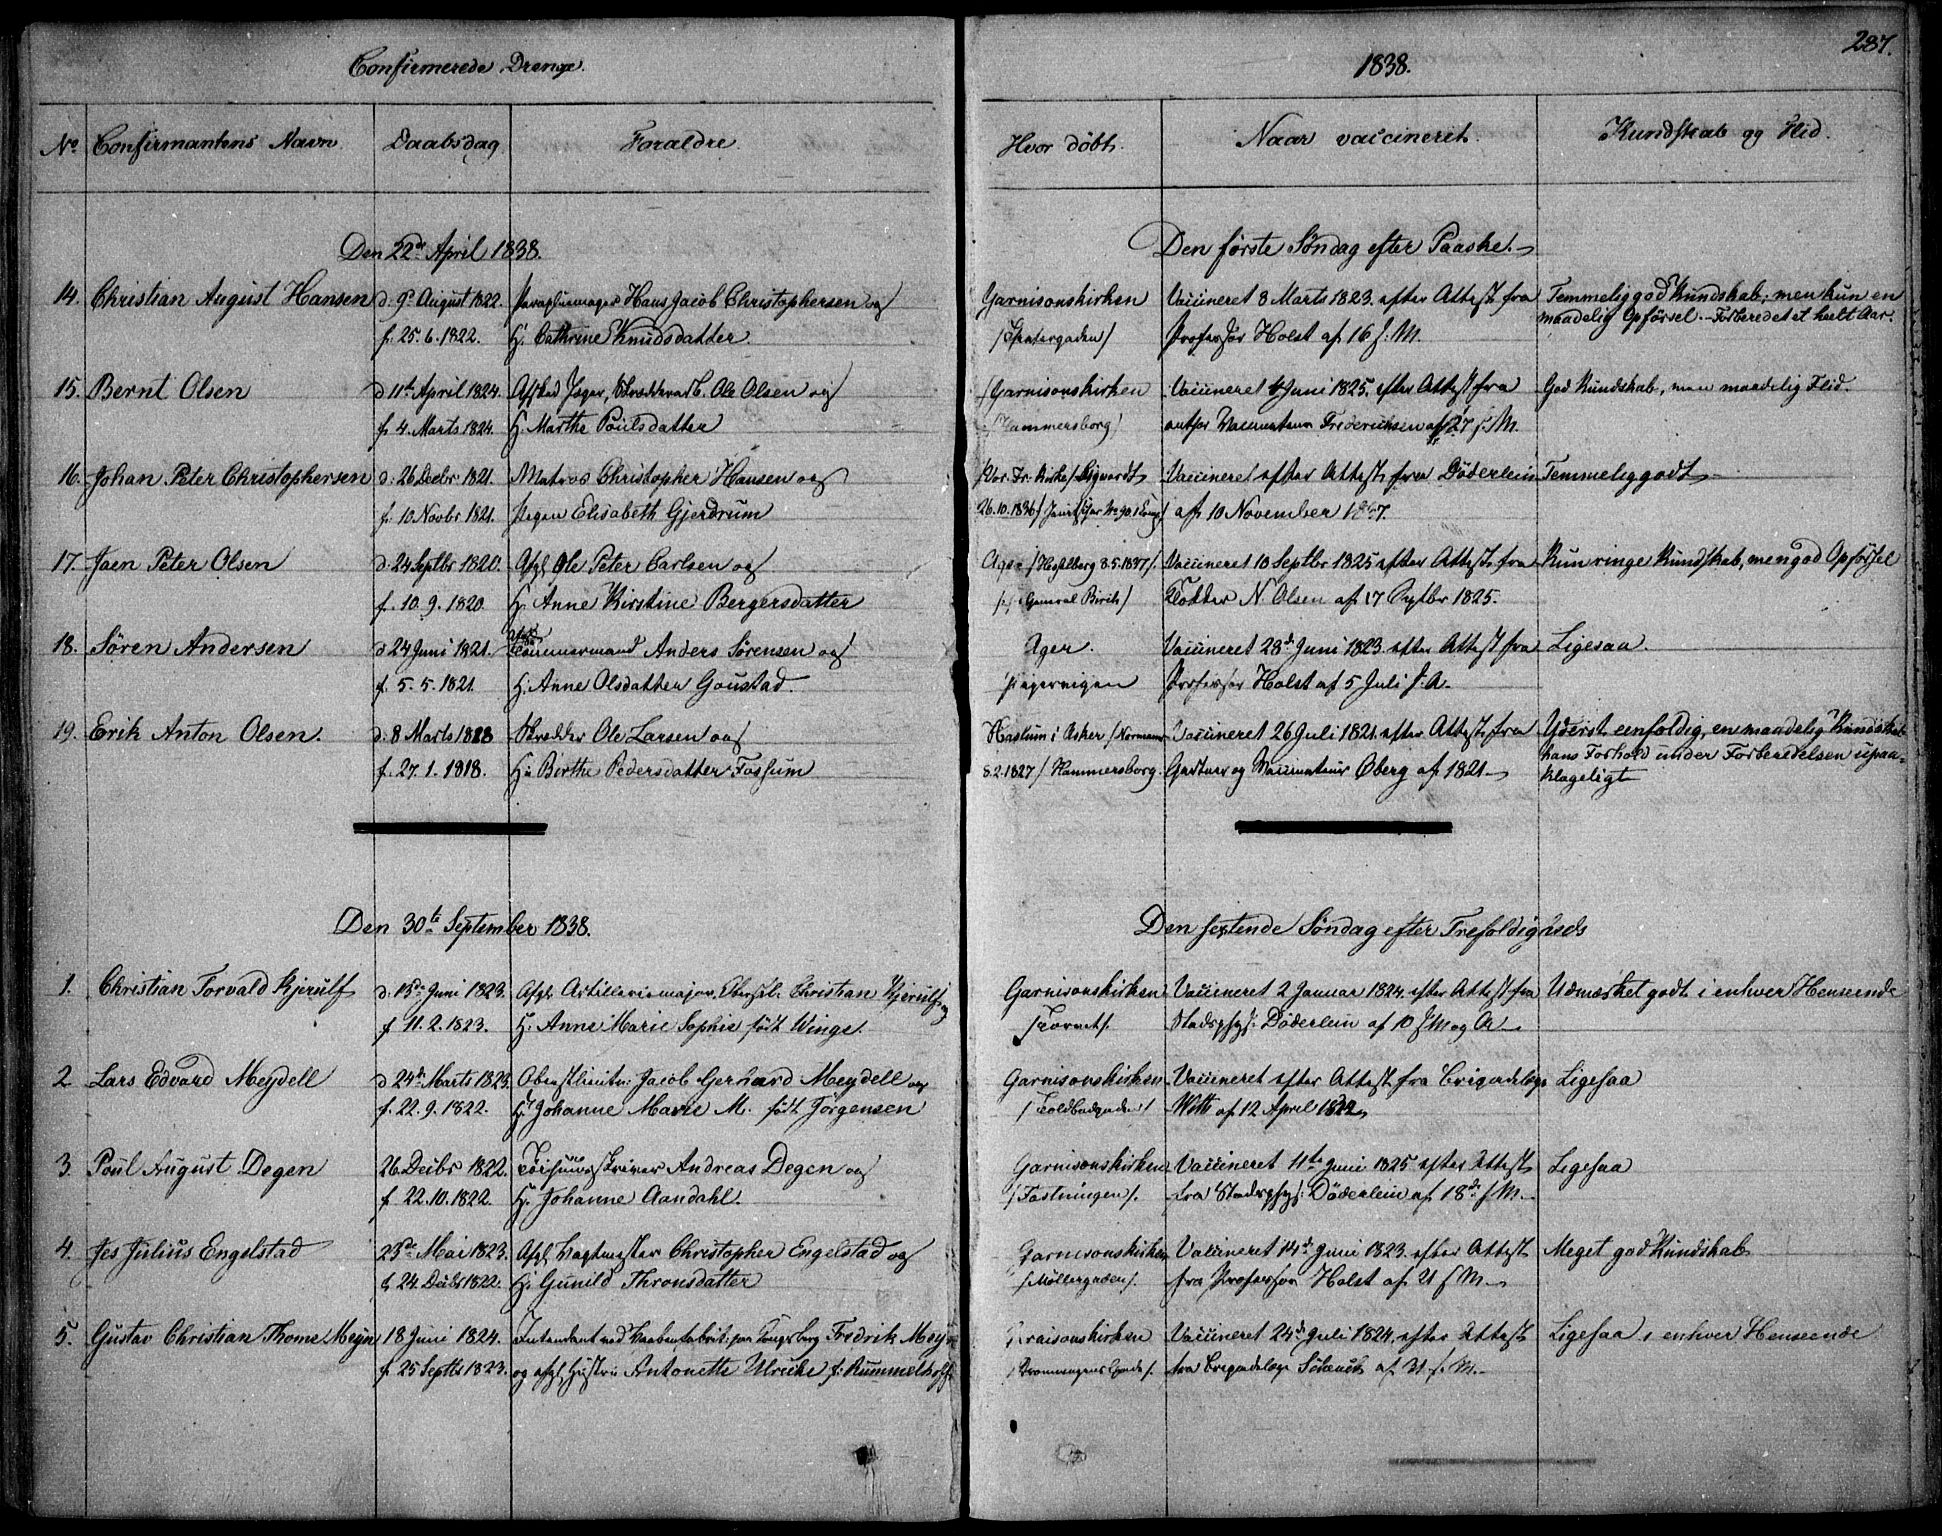 Confirmerede Drenge.
1838.
287.
No
Confirmantens Navn
Daabsdag
Forældre
Hvor døbt.
Naar vaccineret.
Kundskab og Flid.
Den 22de April 1838.
Den første Søndag efter Paaske.
14. Christian August Hansen
d. 9de August 1822.
f. 25.6.1822.
Paraplumager Hans Jacob Christophersen og
H. Cathrine Knudsdatter
Garnisonskirken
Vaccineret 8 Marts 1823. efter Attest fra
Professor Holst af 16 s. M.
Temmelig god Kundskab; men kun en
maadelig Opførsel. Forberedet et heelt Aar.
15. Bernt Olsen
d 11te April 1824.
f. 4. Marts 1824.
Afsked Jæger, Ole Olsen og
H. Marthe Poulsdatter
/Garnisonskirken
/Hammersborg/
Vaccineret 4 Juni 1825. efter Attest fra
Vaccinateur Frederiksen af 27 s. M.
God Kundskab, men maadelig Flid.
16. Johan Peter Christophersen
d. 26 Decbr 1821.
f. 10 Novbr 1821.
Matros Christopher Hansen og
Pigen Elisabeth Gjerdrum
Vor Fr. Kirke / Sigvardt
26.10.1836/
Vaccineret efter Attest fra Döderlein
af 10 November
Temmelig godt
17. Jaen Peter Olsen
d. 24 Septbr 1820.
f. 10.9.1820
Afg. Ole Peter Carlsen og
H. Anne Kirstine Bergersdatter
Vaccineret 10 Septbr 1825 efter Attest fra
Klokker N Olsen af 17 Septbr 1825.
Kun ringe Kundskab, men god Opførsel
18. Søren Andersen
d 24 Juni 1821.
f. 5.5.1821.
Tømmermand Anders Sørensen og
H. Anne Olsdatter Goustad.
Ager.
/Pipervigen
Vaccineret 28de Juni 1823 efter Attest fra
Professor Holst af 5 Juli s. A.
Ligesaa.
19. Erik Anton Olsen.
d. 8 Marts 1818
f. 27.1.1818.
Skrædder Ole Larsen og
H. Birthe Pedersdatter Fossum
Haslum i Asker /Normann
8.2.1827/ Hammersborg.
Vaccineret 26 Juli 1821 efter Attest fra
Gartner og Vaccinateur Øberg af 1821
Yderst eenfoldig, en maadelig Kundskab
hans Forhold under Forberedelsen upaa-
klageligt
Den 30te September 1838.
Den sextende Søndag efter Trefoldigheds
1. Christian Torvald Kjerulf
d. 13de Juni 1823.
f 11.2.1823.
Afg. Artilleriemajor, Christian Kjerulf og
H. Anne Marie Sophie født Winge.
Garnisonskirken
/Torvet/.
Vaccineret 2 Januar 1824 efter Attest fra
Stadsphys: Döderlein af 10 s M og A
Udmærket godt i enhver Henseende
2 Lars Edvard Meydell
d 24de Marts 1823.
f. 22.9.1822.
Oberstlieutn: Jacob Gerhard Meydell og
H. Johanne Marie M. født Jørgensen
Garnisonskirken
/Toldbodgaden/
Vaccineret efter Attest fra Brigadelæge
Witt af 12 April 1822,
Ligesaa
3. Poul August Degen
26 Decbr 1822.
f 22.10.1822.
Andreas Degen og
H. Johanne Aandahl.
Garnisonskirken
/Fæstningen/.
Vaccineret 11te Juni 1825 efter Attest
fra Stadsphys: Döderlein af 18de s M.
Ligesaa
4. Jes Julius Engelstad
23de Mai 1823.
f. 24 Decbr 1822.
Afg. Vagtmester Christopher Engelstad og
H. Gunild Thronsdatter
Garnisonskirken
/Møllergaden/.
Vaccineret 14de Juni 1823. efter Attest
fra Professor Holst af 21 s M.
Meget god Kundskab
5. Gustav Christian Thome Meyn
18 Juni 1824.
f. 25 Septbr 1823.
Intendant ved Vaabenfabrik: paa Kongsberg Fredrik Meyn
og afg. Hustru Antonette Ulrike f. Rummelhoff.
Garnisonskirken
Vaccineret 24de Juli 1824. efter Attest
fra Brigadelæge Schenck af 31 s. M.
Ligesaa i enhver Henseende